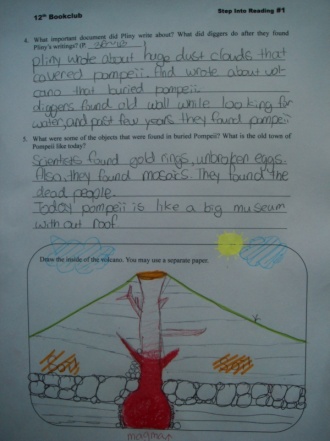 12th Bookclub
Step Into Reading #1
4. What important document did Pliny write about? What did diggers do after they found
Pliny's writings? (P.
pliny wrote about huge dust clouds that
covered pompeii. And wrote about vol-
cano that buried pompeii.
diggers found old wall while looking for
water, and past few years they found pompeii
5. What were some of the objects that were found in buried Pompeii? What is the old town of
Pompeii like today?
Scientists found gold rings, unbroken eggs.
Also, they found mosaics. They found the
dead people.
Today pompeii is like a big museum
with out roof
Draw the inside of the volcano. You may use a separate paper.